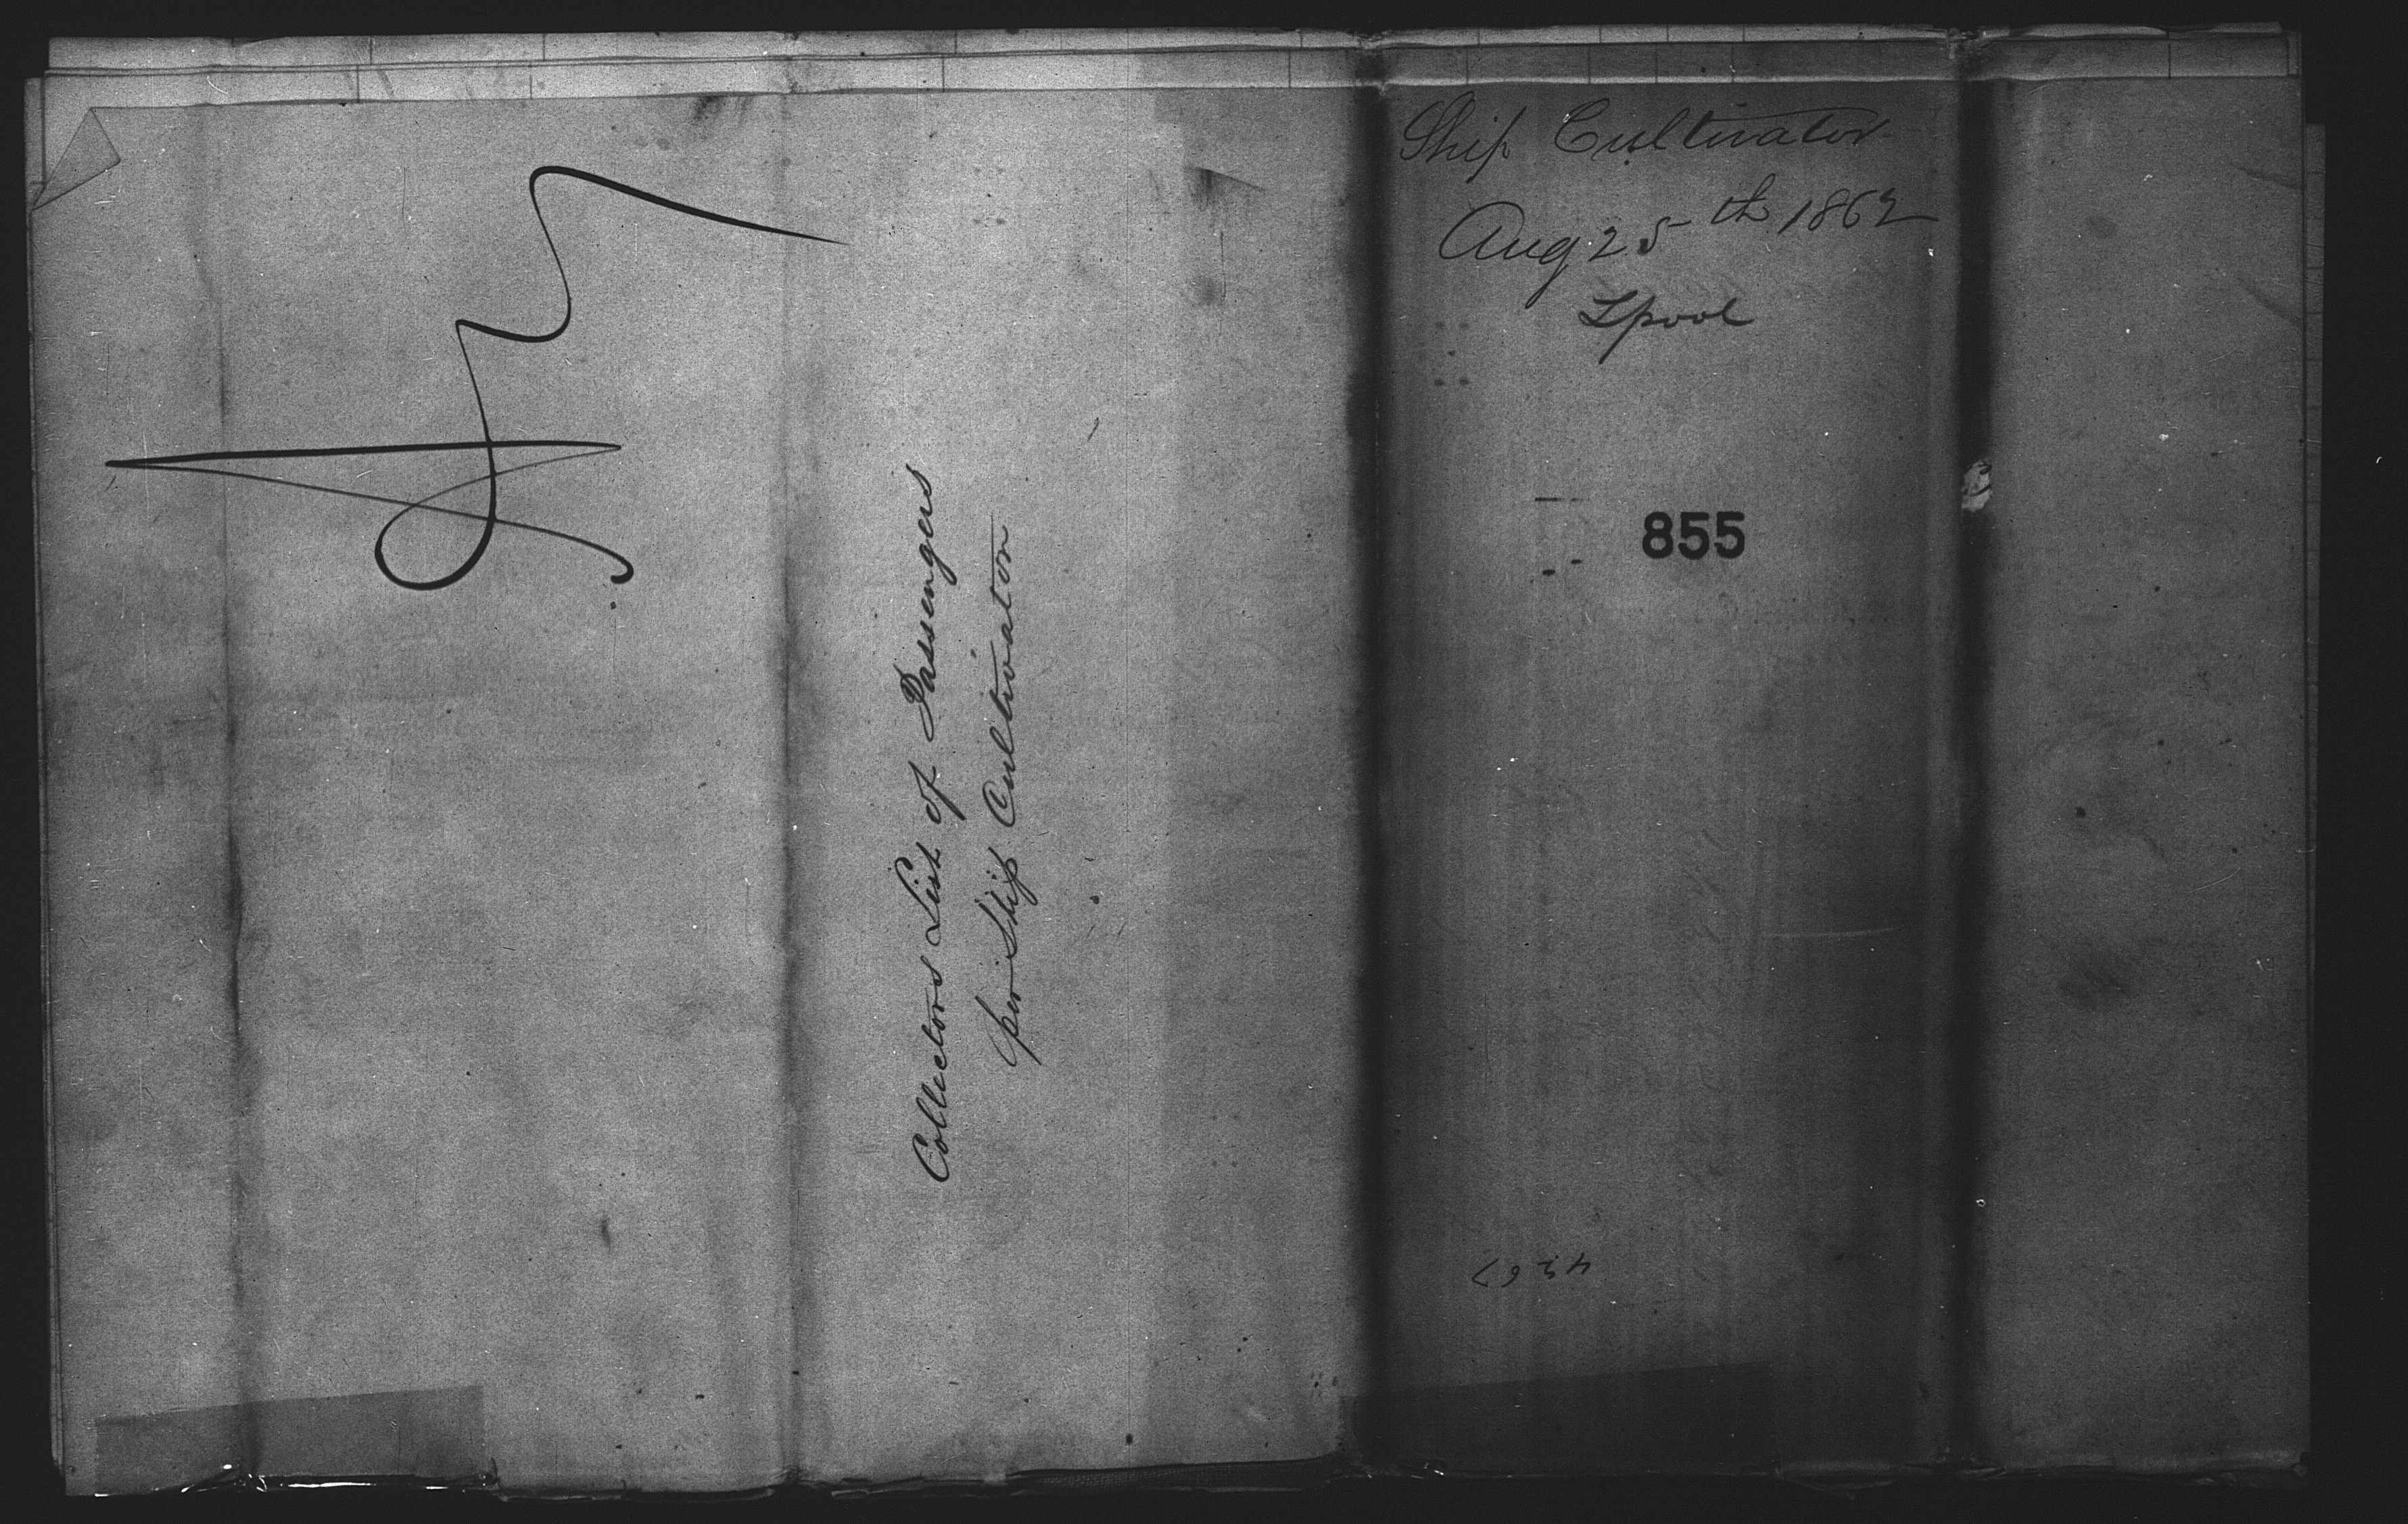 Collectors List of Passengers
per Ship Cultivator
Ship Cultivator
Aug 25th 1862
Lpool
855